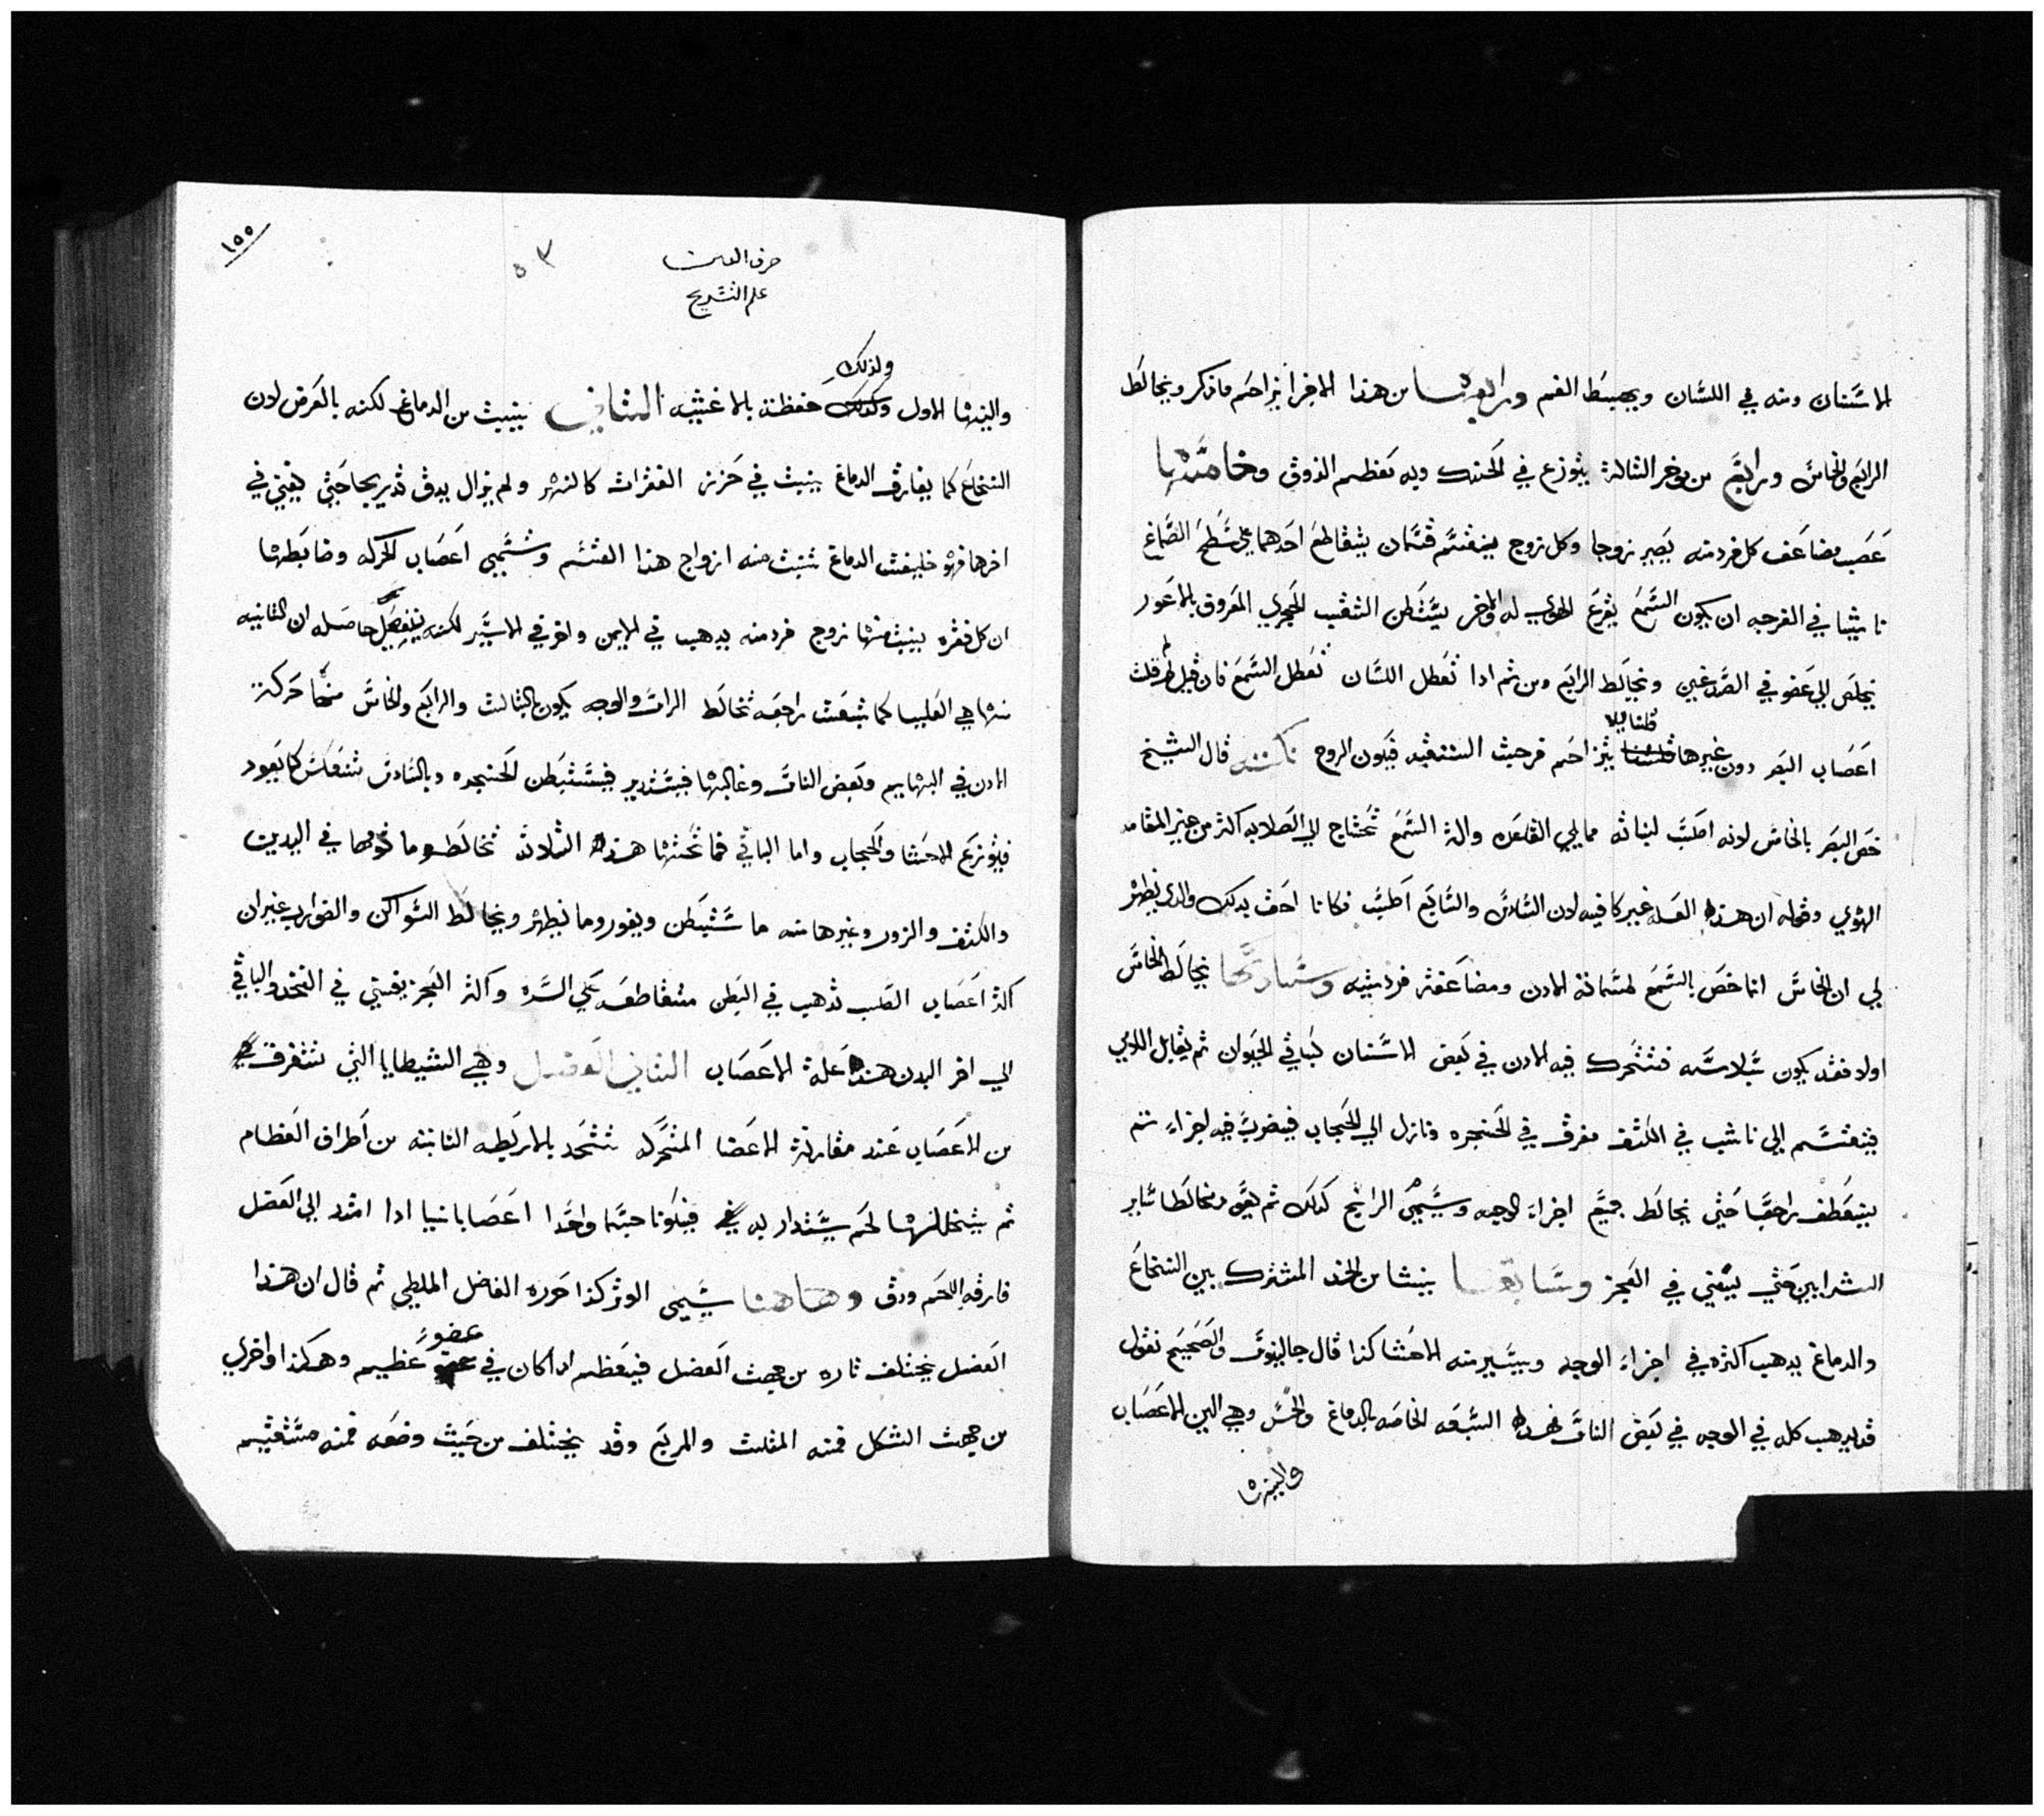 الاسنان ومنه في اللسان ويحيط الفم ورابعها من هذا الاخر يزاحم ما ذكر ويخالط
الرابع والخامس ورابع من موخر الثالثة يتوزع في الحنك وبه معظم الذوق وخامسها
عصب مضاعف كل فرد منه يصير زوجا وكل زوج ينقسم قسمان يتقاطع احدهما على سطح الصماخ
ناشبا في الفرجه ان يكون السمع بقرع الهوى له والاخر يستبطن الثقب الحجري المعروف بالاعور
يخلص الى عضو في الصدغين ويخالط الرابع ومن ثم ادا تعطل اللسان تعطل السمع فان قيل لم قلت
اعصاب البصر دون غيرها قلنا ليلا يتزاحم فرحيث الستقبه فيكون الروح نكته قال الشيخ
خص البصر بالخامس لانه اصلب لنباته مما يلي القاعده والة السمع تحتاج الى الصلابه اكثر من غيرها لمقامه
الهوي وقوله ان هذه العله غير كافيه لان السادس والسابع اصلب فكانا احق بدلك والدي يظهر
لي ان الخامس انما خص بالسمع لمسامته الادن ومضاعفة فرديه وسادسها يخالط الخامس
اولا فقد يكون بلاسه فتتحرك فيه الادن في بعض الاسنان كباقي الحيوان ثم يقابل اللامي
فينقسم الى ناشب في الكتف مفرق في الحنجره ونازل الى الحجاب فيضرب فيه اجزاء ثم
ينعطف راجعا حتى يخالط جميع اجزاء الوجه ويسمى الراجع كدلك ثم يعود مخالطا ساير
الشرايين حتى يفني في العجز وسابعها ينشا من الحد المشترك بين النخاع
والدماغ يدهب اكثره في اجزاء الوجه ويسير منه الاحشا كذا قال جالينوس والصحيح نقول
قد يدهب كله في الوجه في بعض الناس فهذه السبعه الخاصه بالدماغ والحس وهي الين الاعصاب
والينها
١٥٥
٥٣
حرف العين
علم التشريح
ولذلك
والينها الاول وكذلك حفظة بالاغشيه الثاني ينبت من الدماغ لكنه بالعرض لان
النخاع كما يفارق الدماغ ينبث في خرز الفقرات كالنهر ولم يزال يدق تدريجا حتى يفنى في
اخرها فهو خليفة الدماغ تنبت منه ازواج هذا القسم وتسمى اعصاب الحركه وضابطها
ان كل فقره ينبت منها زوج فرد منه يدهب في الايمن واخر في الايسر لكنه يتفصل حاصله ان الثانيه
منها هي العليا كما تبعث راجعه تخالط الراس والوجه يكون بالثالث والرابع والخامس منها حركة
الادن في البهايم وبعض الناس وغالبها فيستدير فيستبطن الحنجره وبالسادس تنعكس كما يعود
فيوزع الاحشا والحجاب واما الباقي فما تحتها هذه الثلاثة تخالط وما فوقها في اليدين
والكتف والزور وغيرها منه ما يستبطن ويغور وما يظهر ويخالط السواكن والضوارب غير ان
اكثر اعصاب الصلب تدهب في البطن متقاطعه على السره واكثر العجز يفنى في الفخد والباقي
الى اخر البدن هذه علة الاعصاب الثاني العضل وهي الشظايا التي تتفرق
من الاعصاب عند مقارنة الاعضا المتحركه تتحد بالاربطه النابته من اطراف العظام
ثم يتخللها لحم يستدار به فيكونا جسما واحدا اعصابا نيا ادا امتد الى العضل
فارقه اللحم ودق وهاهنا يسمى الوتر كذا حرره الفاضل الملطي ثم قال ان هذا
العضل يختلف تاره من جهث العضل فيعظم ادا كان في عضو عظيم وهكذا واخرى
من جهث الشكل فمنه المثلث والمربع وقد يختلف من حيث وضعه فمنه مستقيم